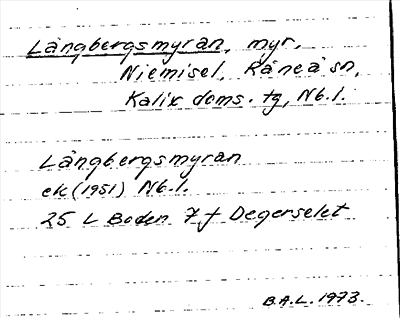 Långbergsmyran, myr,
Niemisel, Råneå sn,
Kalix doms. tg, Nb.l.
Långbergsmyran
ek (1951) Nb.l.
25 L Boden 7 f Degerselet
B.A.L. 1973.